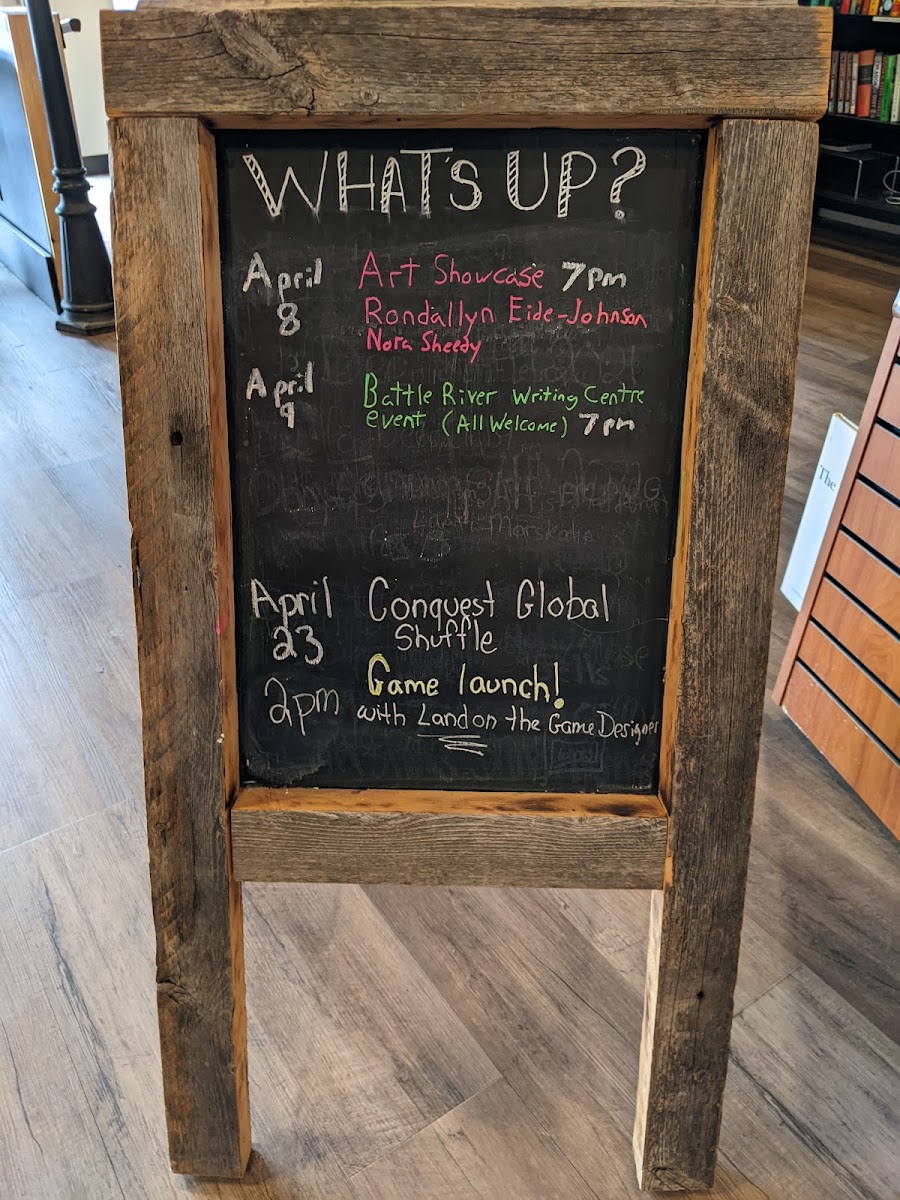 WHAT'S UP?
April 8
Art Showcase 7pm
Rondallyn Eide-Johnson
Nora Sheedy
April 9
Battle River Writing Centre
event (All Welcome) 7pm
April 23
2pm
Conquest Global
Shuffle
Game launch!
with Landon the Game Designer
The